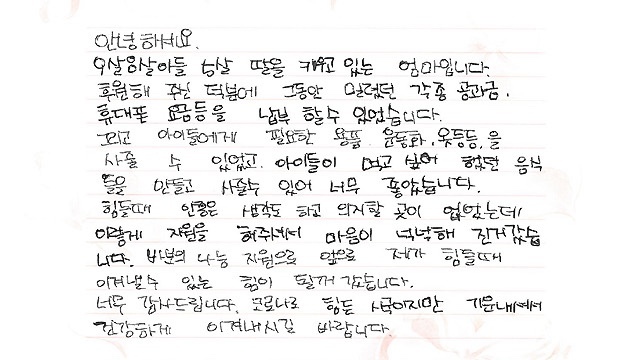 안녕하세요.
9살8살아들 5살 딸을 키우고 있는 엄마입니다.
후원해 주신 덕분에 그동안 밀렸던 각종 공과금,
휴대폰 요금등을 납부 할수 있었습니다.
그리고 아이들에게 필요한 용품, 운동화, 옷등등,을
사줄 수 있었고, 아이들이 먹고 싶어 했던 음식
들을 만들고 사줄수 있어 너무 좋았습니다.
힘들때 안좋은 생각도 하고 의지할 곳이 없었는데
이렇게 지원을 해주셔서 마음이 넉넉해 진거같습
니다. 나눔 지원으로 앞으로 제가 힘들때
이겨낼수 있는 힘이 될꺼 같습니다.
너무 감사드립니다. 코로나로 힘든 시국이지만 기운내셔서
건강하게 이겨내시길 바랍니다.